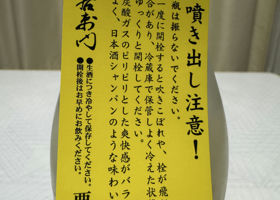 噴き出し注意！
瓶は振らないでください。
一度に開栓すると吹きこぼれや、栓が飛
合があり、冷蔵庫で保管しよく冷えた状
ゆっくりと開栓してください。
炭酸ガスのピリピリとした爽快感がバラ
よく、日本酒シャンパンのような味わい
右衛門
●生酒につき冷やして保存してください。
●開栓後はお早めにお飲みください。